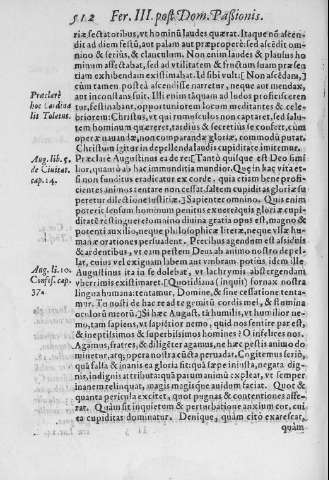 512 Fer. III. post Dom. Passionis.
riæ sectatoribus, vt hominũ laudes quærat. Itaque nõ ascen-
dit ad diem festũ, aut palam aut præproperè: sed ascẽdit om-
nino & serius, & quasi in occulto. Non enim laudes & plausus ho
minum affectabat, sed ad vtilitatem & fructum suam præsen
tiam exhibendam existimabat. Id sibi vult: [Non ascẽdam,]
cùm tamen postea ascendisse narretur, neque aut mendax,
aut inconstans fuit. Illi enim tãquam ad ludos proficisceren
tur, festinabant, opportuniorem locum meditantes & cele-
briorem: Christus, vt qui rumusculos non captaret, sed salu-
tem hominum quæreret, tardius & secretius se confert, cùm
opere nauaturus, non comparandæ gloriæ, commodũ putat.
Christum igitur in depellenda laudis cupiditate imitemur.
Præclarè Augustinus ea de re: [Tantò quisque est Deo simi
lior, quantò ab hac immunditia mundior. Que in hac vita et-
si non funditus eradicatur ex corde, quia etiam bene profi-
cientes animos tentare non cessat: saltem cupiditas gloriæ su
peretur dilectione iustitiæ.] Sapienter omnino. Quis enim
poterit
Præclarè
hoc Cardina
lis Toletus.
Aug. lib. 5.
de Ciuitat.
cap. 14.
potenti auxilio, neque philosophicæ literæ, neque vllæ hu-
manæ rationes persuadent. Precibus agendum est assiduis
& ardentibus, vt eam pestem Deus ab animo nostro depel-
lat, cuius vel exiguam labem
Augustinus ita in se dolebat, vt lachrymis abstergendam
vberrimis existimaret. [Quotidiana (inquit) fornax nostra
lingua humana: tentamur, Domine, & sine cessatione tenta-
mur. Tu nosti de hac re ad te gemitũ cordis mei, & flumina
oculorũ meorũ.] Si hæc August. tã humilis, vt humilior ne-
mo, tam sapiens, vt sapientior nemo, quid nos sentire par est,
& ineptissimos & superbissimos homines? O infelices nos.
Agamus, fratres, & diligẽter agamus, ne hæc pestis animo do
minetur, atq; opera nostra cũcta peruadat. Cogitemus seriò,
quã falsa & inanis ea gloria sit: quã sæpe iniusta, negata dig-
nis, indignis attributa: quã parum animũ expleat, vt semper
inanem relinquat, magis magisque auidum faciat. Quot &
quanta pericula excitet, quot pugnas & contentiones affe-
rat. Quàm sit inquietem & perturbatione anxium cor, cui
ea cupiditas dominatur. Denique, quàm citò exarescat,
quàm
Aug. li. 10.
Confes. cap.
37.